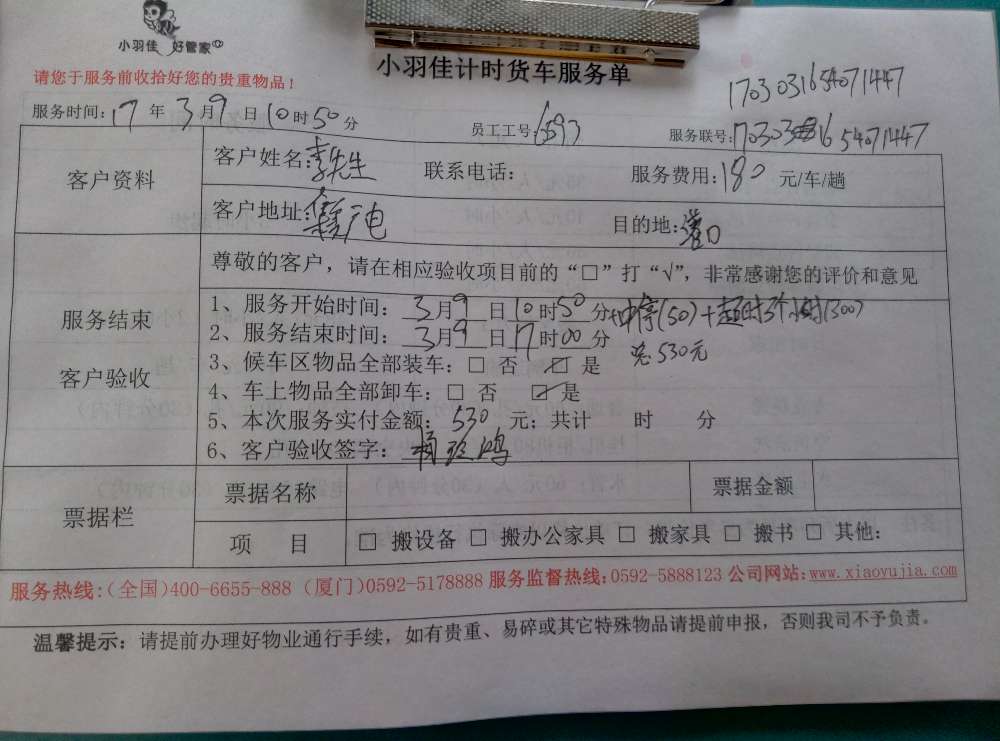 小羽佳 好管家
小羽佳计时货车服务单
请您于服务前收拾好您的贵重物品！
1703031654071447
服务时间：17 年 3 月 9 日 10 时 50 分
员工工号：
服务联号：170303 16 54071447
客户资料
客户姓名：李先生 联系电话： 服务费用：180 元/车/趟
客户地址： 目的地：灌口
服务结束
客户验收
尊敬的客户，请在相应验收项目前的“□”打“√”，非常感谢您的评价和意见
1、服务开始时间：3月9日10时50分+中停(50)+超时3个小时(300)
2、服务结束时间：3月9日17时00分 总530元
3、候车区物品全部装车：□ 否 ☑ 是
4、车上物品全部卸车：□ 否 ☑ 是
5、本次服务实付金额：530 元；共计 时 分
6、客户验收签字：
票据栏
票据名称 票据金额
项 目 □ 搬设备 □ 搬办公家具 □ 搬家具 □ 搬书 □ 其他：
服务热线：（全国）400-6655-888（厦门）0592-5178888 服务监督热线：0592-5888123 公司网站：www.xiaoyujia.com
温馨提示：请提前办理好物业通行手续，如有贵重、易碎或其它特殊物品请提前申报，否则我司不予负责。